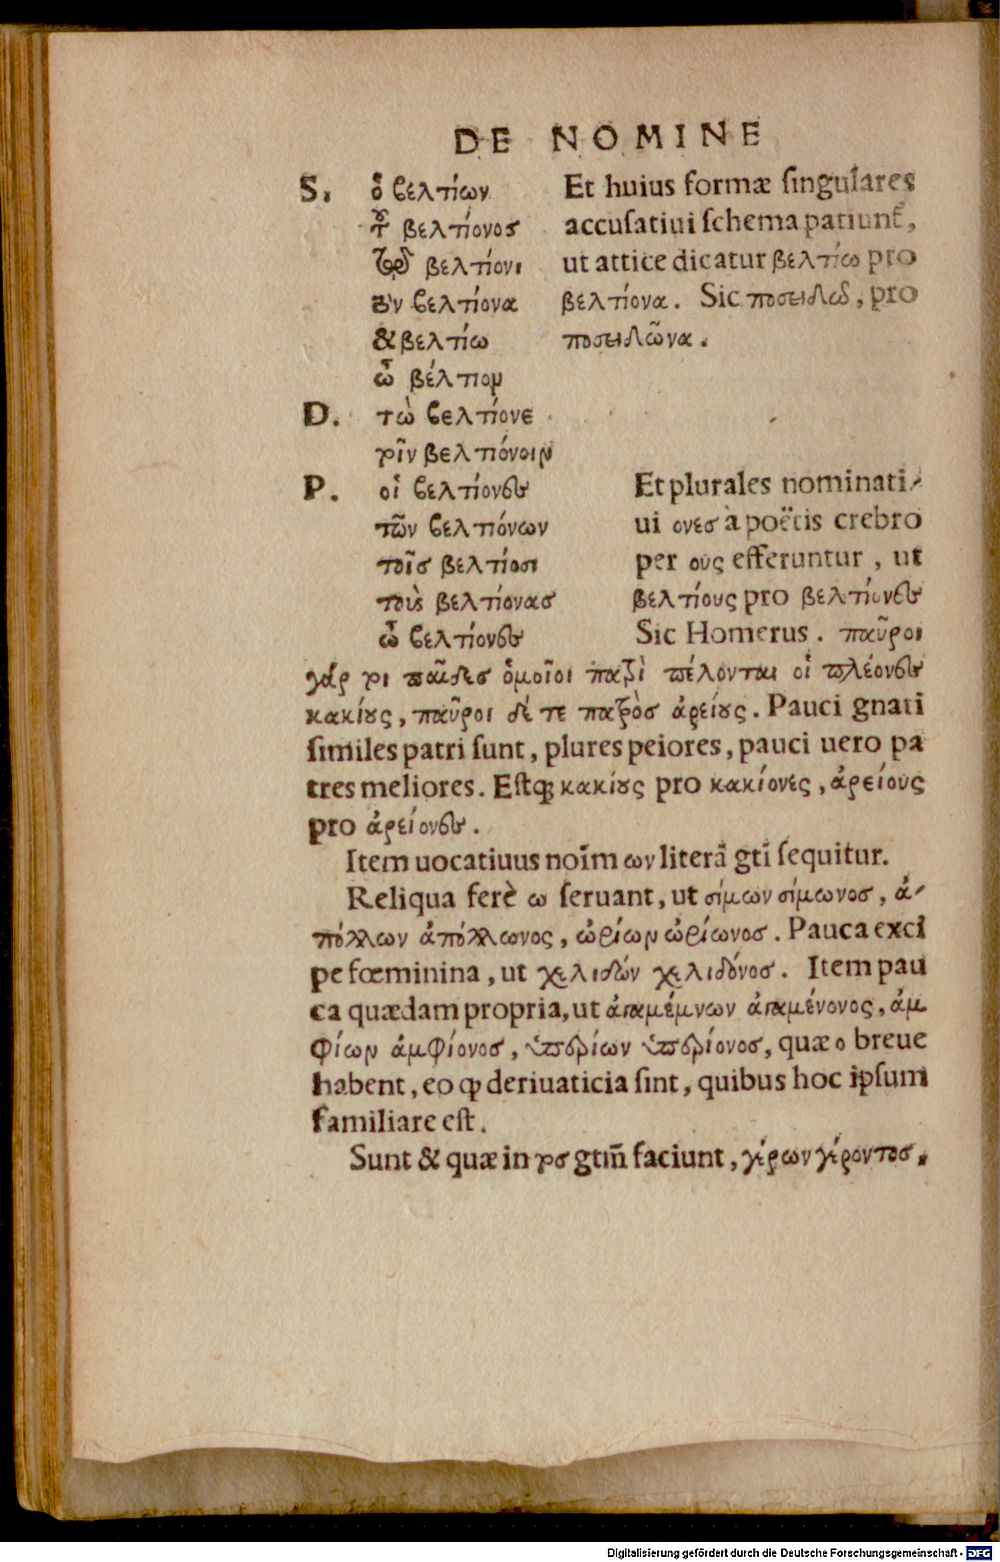 DE NOMINE
S. ὁ βελτίων
τοῦ βελτίονος
τῷ βελτίονι
τὸν βελτίονα
& βελτίω
ὦ βέλτιον
D. τὼ βελτίονε
τοῖν βελτιόνοιν
P. οἱ βελτίονες
τῶν βελτιόνων
τοῖς βελτίοσι
τοὺς βελτίονας
ὦ βελτίονες
Et huius formæ ſingulares
accuſatiui ſchema patiunt̃,
ut attice dicatur βελτίω pro
βελτίονα. Sic ποσειδῶ, pro
ποσειδῶνα.
Et plurales nominati-
ui ονες à poëtis crebro
per ους efferuntur, ut
βελτίους pro βελτίονες
Sic Homerus. παῦροι
γάρ τοι παῖδες ὁμοῖοι πατρὶ πέλονται οἱ πλέονες
κακίους, παῦροι δέ τε πατρὸς ἀρείους. Pauci gnati
ſimiles patri ſunt, plures peiores, pauci uero pa
tres meliores. Eſtq; κακίους pro κακίονές, ἀρείους
pro ἀρείονες.
Item uocatiuus noīm ων literā gtī ſequitur.
Reliqua ferè ω ſeruant, ut σίμων σίμωνος, ἀ-
πόλλων ἀπόλλωνος, ὠρίων ὠρίωνος. Pauca exci
pe fœminina, ut χελιδών χελιδόνος. Item pau
ca quædam propria, ut ἀγαμέμνων ἀγαμένονος, ἀμ
φίων ἀμφίονος, ὑπερίων ὑπερίονος, quæ ο breue
habent, eo ꝙ deriuaticia ſint, quibus hoc ipſum
familiare eſt.
Sunt & quæ in τος gtm̃ faciunt, γέρων γέροντος.
Digitalisierung gefördert durch die Deutsche Forschungsgemeinschaft - DFG